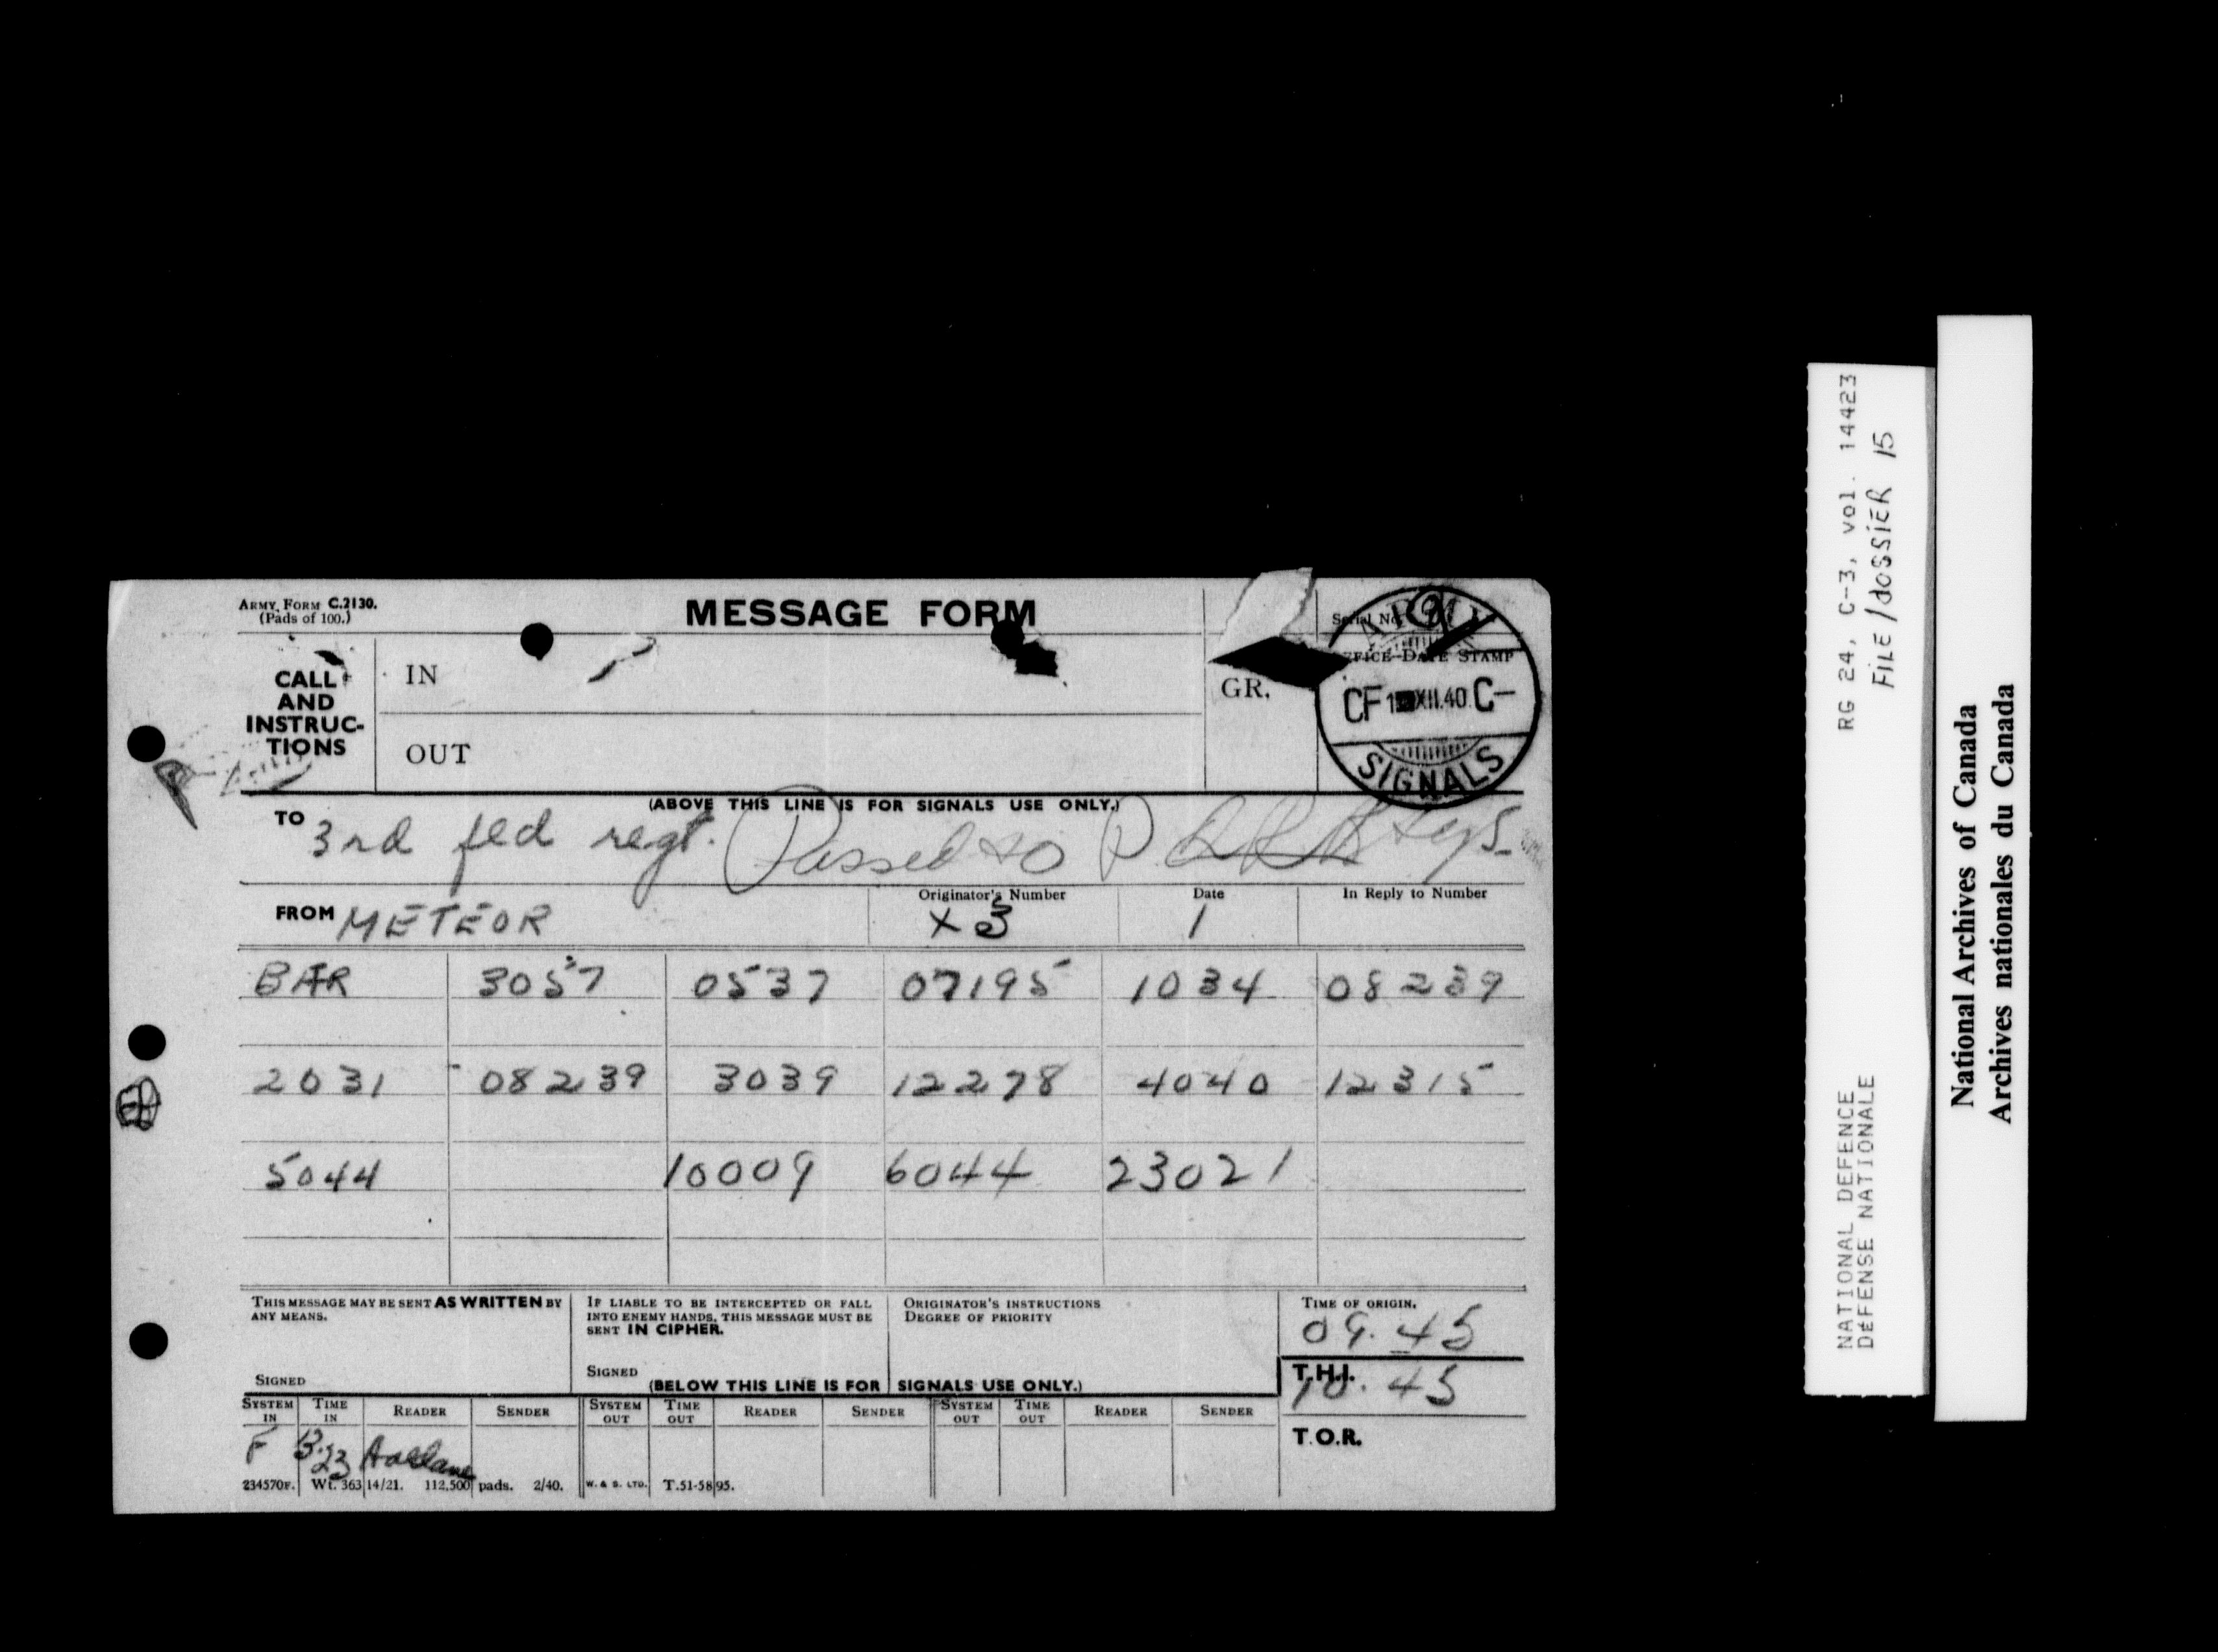 ARMY FORM C.2130.
(Pads of 100.)
MESSAGE FORM
Serial No.
CALL
AND
INSTRUC-
TIONS
IN
OUT
GR.
OFFICE DATE STAMP
ARMY
CF XII.40 C-
SIGNALS
(ABOVE THIS LINE IS FOR SIGNALS USE ONLY.)
TO 3rd fld regt. Passed to
FROM METEOR
Originator's Number
Date
In Reply to Number
X 3
1
BAR 3057 0537 07195 1034 08239
2031 08239 3039 12278 4040 12315
5044 10009 6044 23021
THIS MESSAGE MAY BE SENT AS WRITTEN BY
ANY MEANS.
SIGNED
IF LIABLE TO BE INTERCEPTED OR FALL
INTO ENEMY HANDS, THIS MESSAGE MUST BE
SENT IN CIPHER.
SIGNED
ORIGINATOR'S INSTRUCTIONS
DEGREE OF PRIORITY
TIME OF ORIGIN.
09.45
T.H.I.
10.45
T.O.R.
(BELOW THIS LINE IS FOR SIGNALS USE ONLY.)
SYSTEM IN TIME IN READER SENDER SYSTEM OUT TIME OUT READER SENDER SYSTEM OUT TIME OUT READER SENDER
F
234570F. Wt. 36314/21. 112,500 pads. 2/40. W. & S. LTD. T.51-5895.
RG 24, C-3, vol. 14423
FILE/dossier 15
NATIONAL DEFENCE
DÉFENSE NATIONALE
National Archives of Canada
Archives nationales du Canada